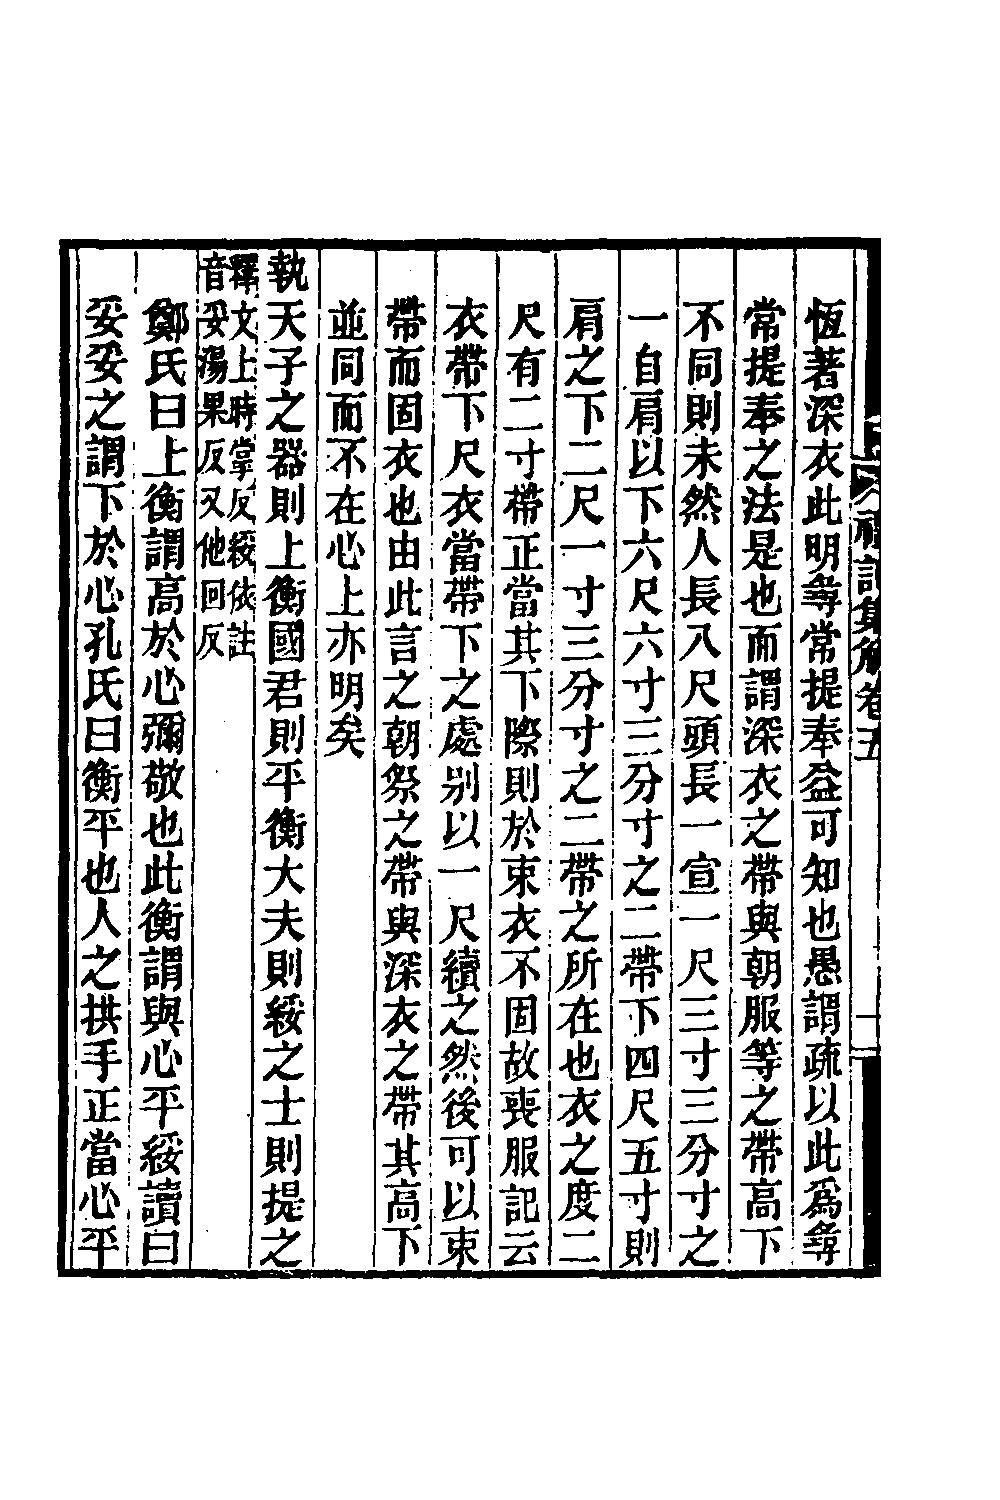 禮記集解卷五
恆著深衣此明尋常提奉益可知也愚謂疏以此爲尋
常提奉之法是也而謂深衣之帶與朝服等之帶高下
不同則未然人長八尺頭長一宣一尺三寸三分寸之
一自肩以下六尺六寸三分寸之二帶下四尺五寸則
肩之下二尺一寸三分寸之二帶之所在也衣之度二
尺有二寸帶正當其下際則於束衣不固故喪服記云
衣帶下尺衣當帶下之處别以一尺續之然後可以束
帶而固衣也由此言之朝祭之帶與深衣之帶其高下
並同而不在心上亦明矣
執天子之器則上衡國君則平衡大夫則綏之士則提之
釋文上時掌反綏依註
音妥湯果反又他回反
鄭氏曰上衡謂高於心彌敬也此衡謂與心平綏讀曰
妥妥之謂下於心孔氏曰衡平也人之拱手正當心平